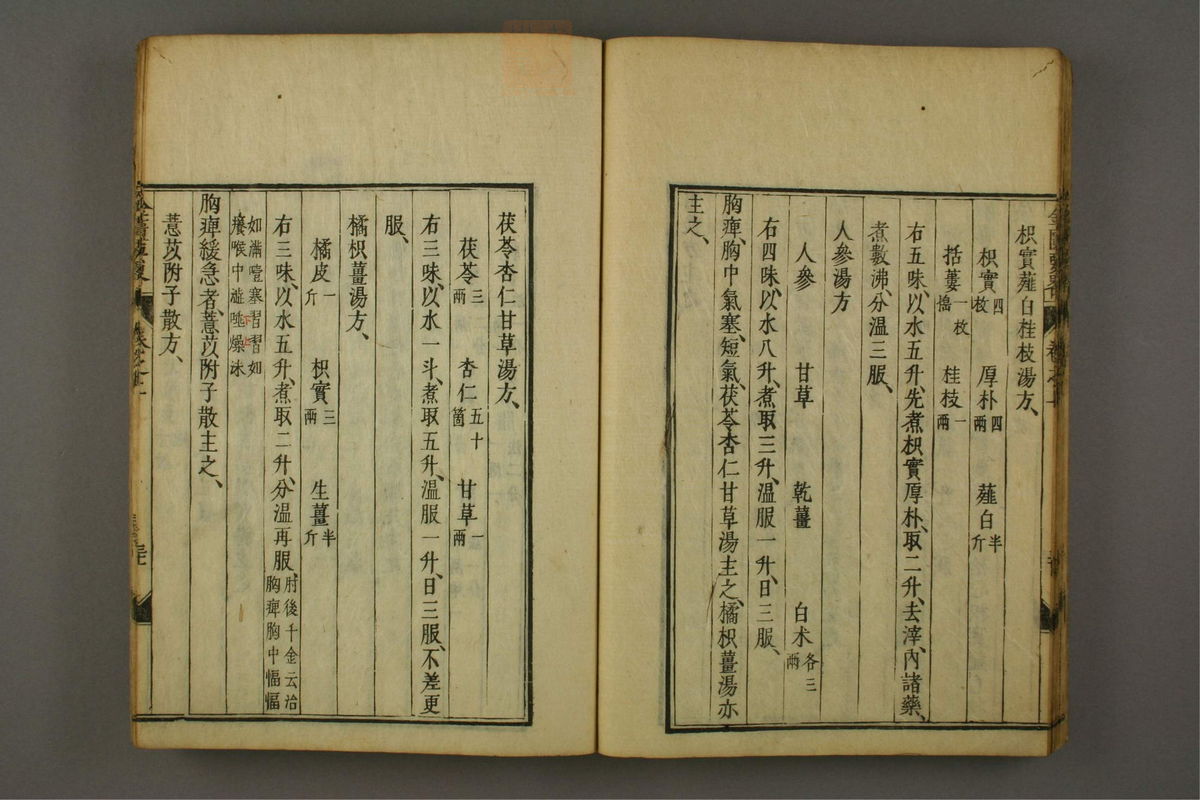 枳實薤白桂枝湯方、
枳實四枚　厚朴四兩　薤白半斤
栝蔞一枚搗　桂枝一兩
右五味、以水五升、先煮枳實厚朴、取二升、去滓、內諸藥、
煮數沸、分溫三服、
人參湯方
人參　甘草　乾薑　白朮各三兩
右四味、以水八升、煮取三升、溫服一升、日三服、
胸痺、胸中氣塞、短氣、茯苓杏仁甘草湯主之、橘枳薑湯亦
主之、
茯苓杏仁甘草湯方、
茯苓三兩　杏仁五十箇　甘草一兩
右三味、以水一斗、煮取五升、溫服一升、日三服、不差更
服、
橘枳薑湯方、
橘皮一斤　枳實三兩　生薑半斤
右三味、以水五升、煮取二升、分溫再服、肘後千金云治胸痺胸中愊愊
如滿噎塞習習如癢喉中澁唾燥沫
胸痺緩急者、薏苡附子散主之、
薏苡附子散方、